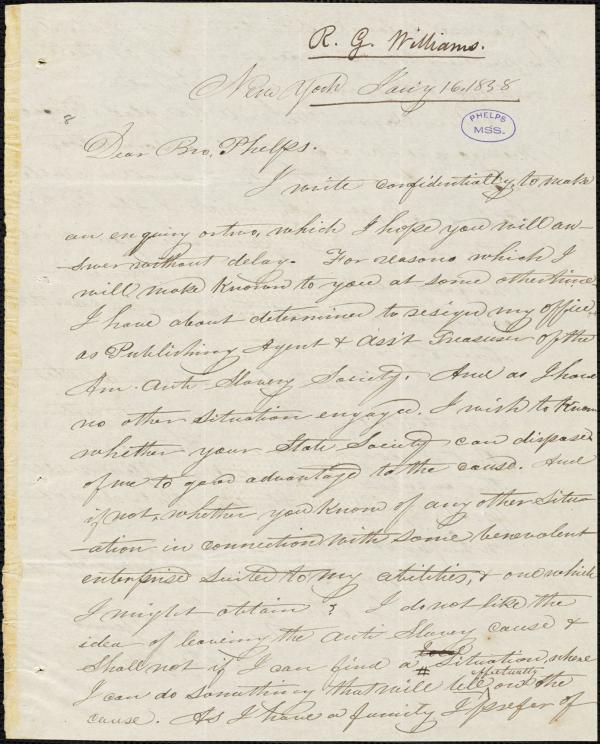 R. G. Williams.
New York Jan'y 16. 1838
PHELPS
MSS.
8
Dear Bro. Phelps.
I write confidentially, to make
an enquiry or two, which I hope you will an-
swer without delay. For reasons which I
will make known to you at some other time,
I have about determined to resign my office,
as Publishing Agent & Ass't Treasurer of the
Am. Anti Slavery Society. And as I have
no other situation engaged. I wish to know
whether your State Society can dispose
of me to good advantage to the cause. And
if not, whether you know of any other situa-
-ation in connection with some benevolent
enterprise suited to my abilities, & one which
I might obtain? I do not like the
idea of leaving the Anti Slavery cause &
shall not if I can find a situation, where
I can do something that will tell effectually on the
cause. As I have a family I prefer of